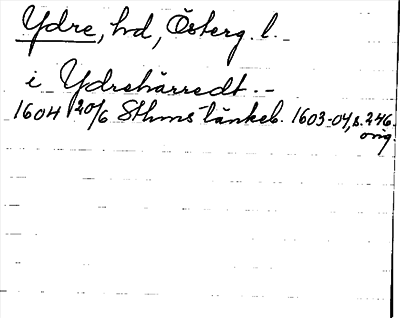 Ydre, hd, Österg. l.
i Ydrehärredt. -
1604 20/6 Sthms tänkeb. 1603-04, s. 246.
orig.